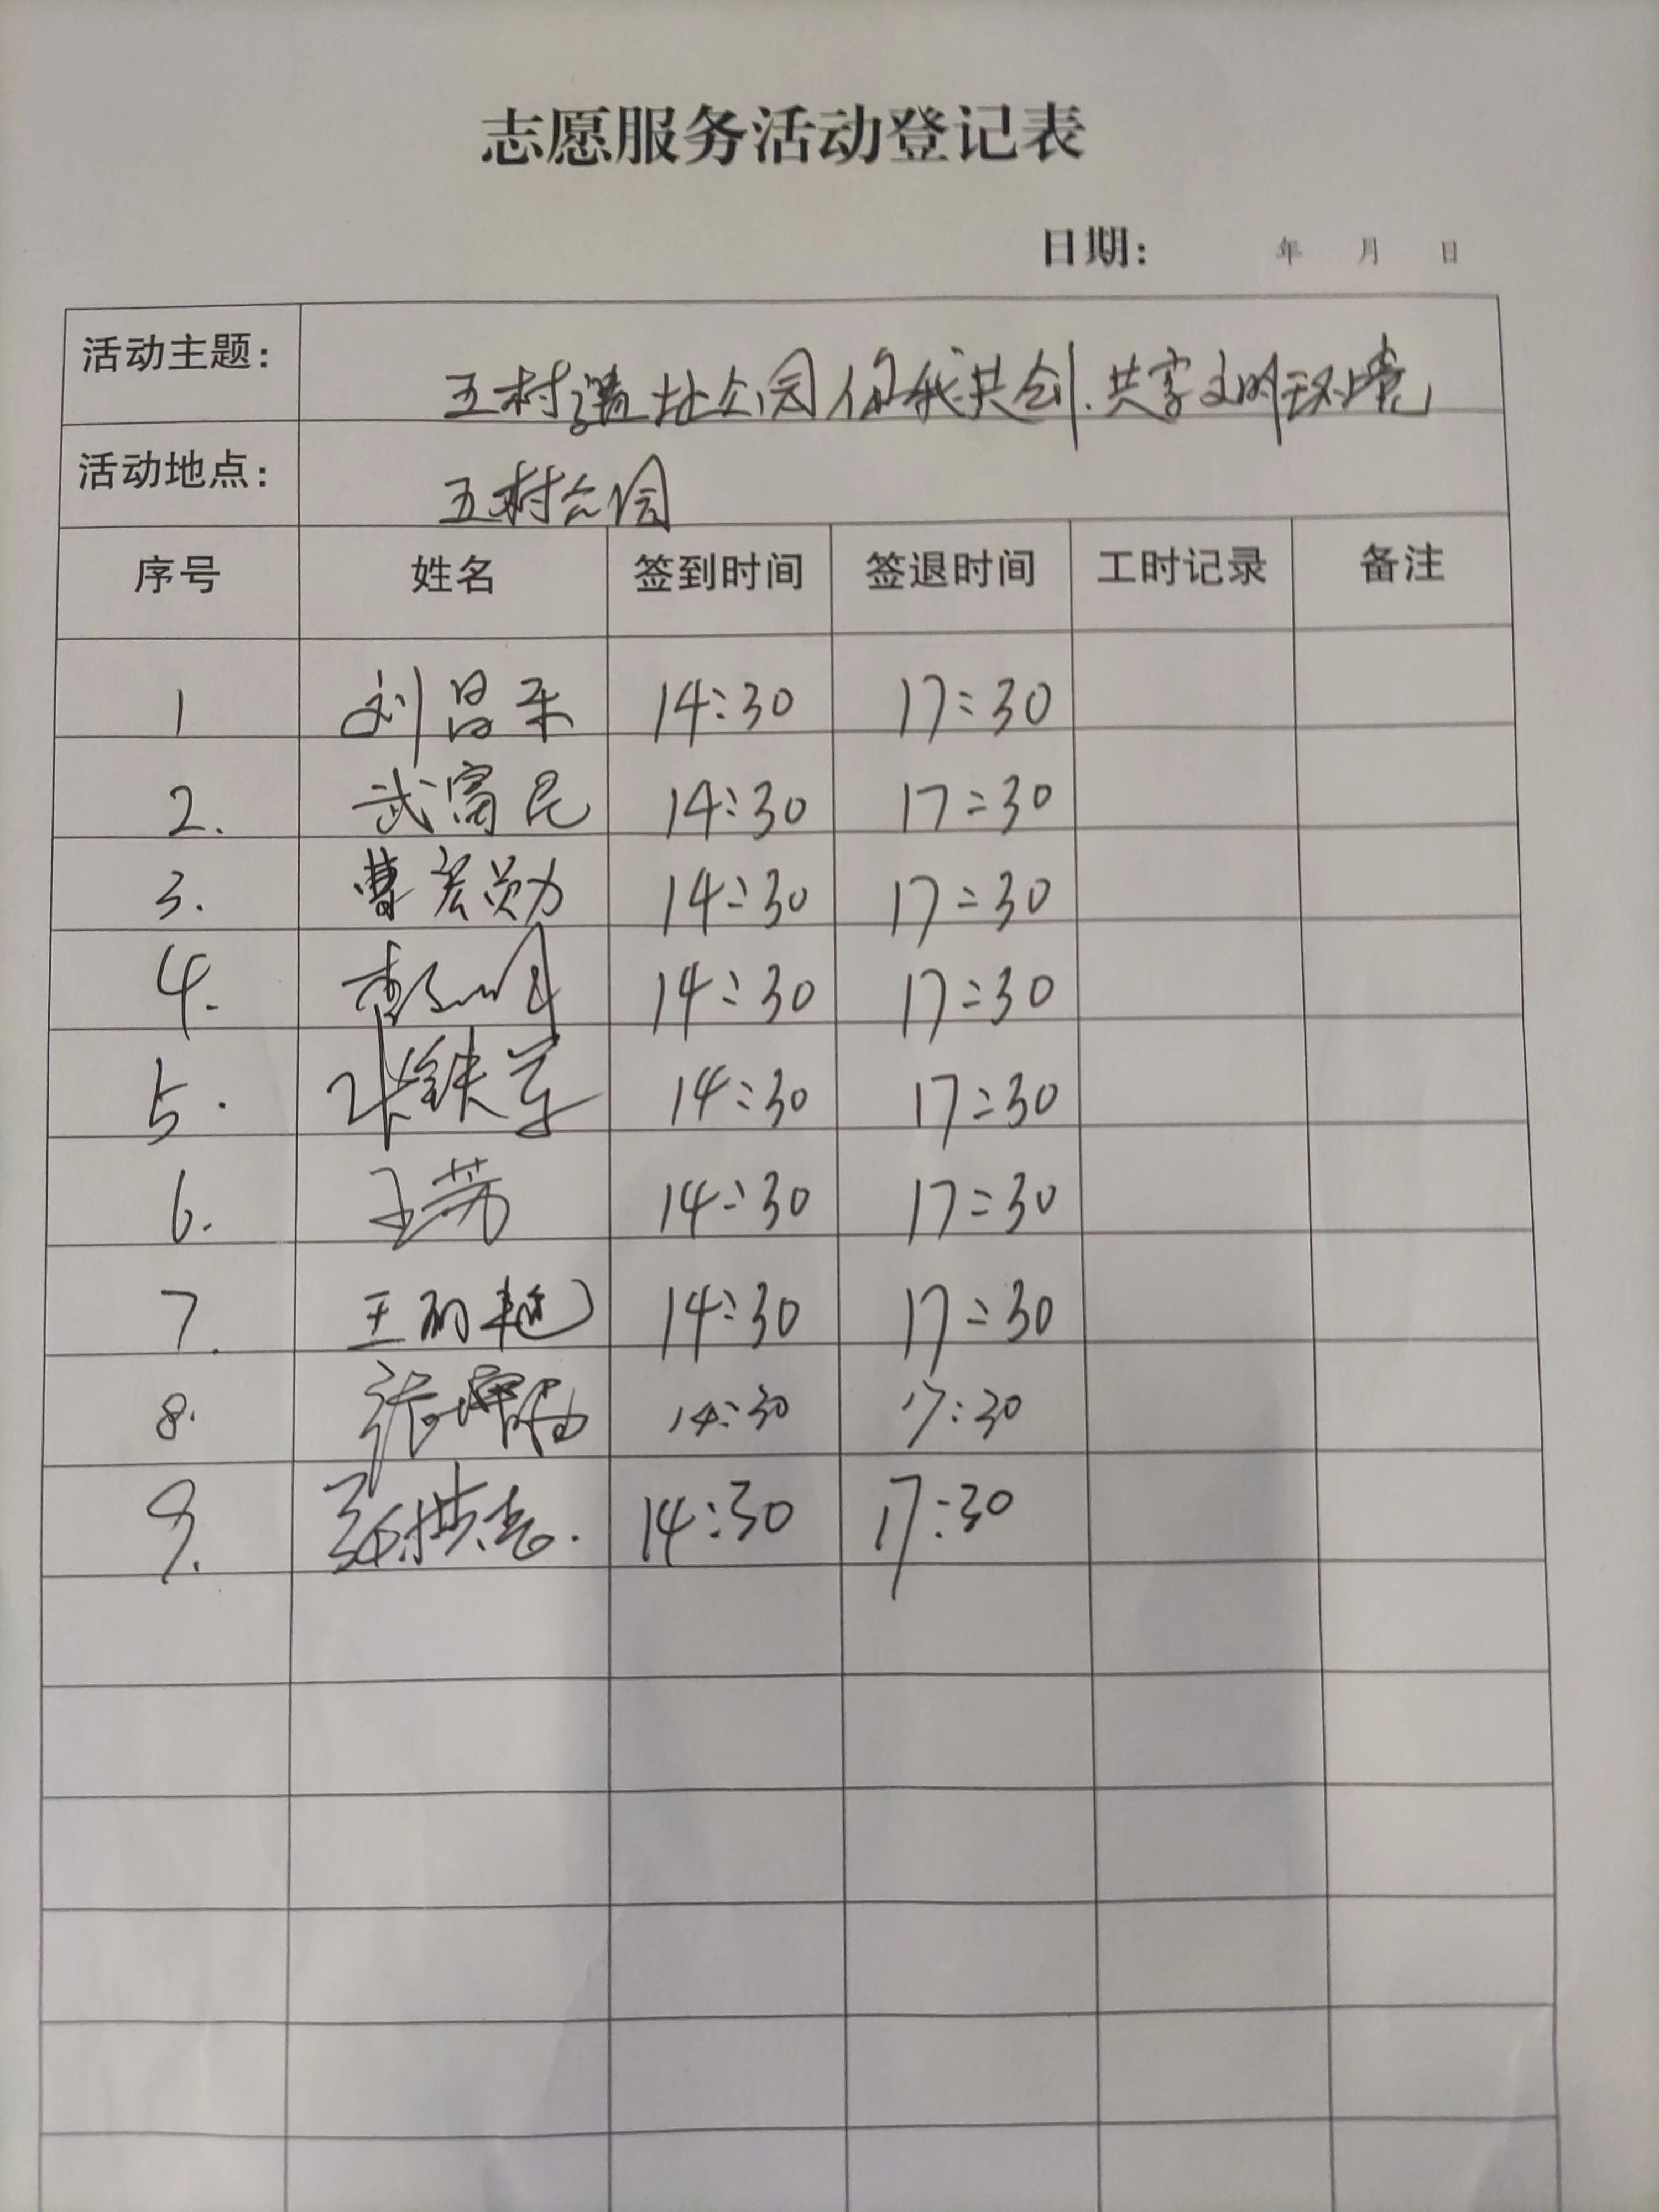 志愿服务活动登记表
日期: 年 月 日
活动主题: 五村遗址公园你我共创.共享文明环境
活动地点: 五村公园
序号 姓名 签到时间 签退时间 工时记录 备注
1 刘昌平 14:30 17:30
2. 武富民 14:30 17:30
3. 曹宏勋 14:30 17:30
4. 14:30 17:30
5. 张铁军 14:30 17:30
6. 王芳 14:30 17:30
7. 王丽艳 14:30 17:30
8. 张 14:30 17:30
9. 志. 14:30 17:30